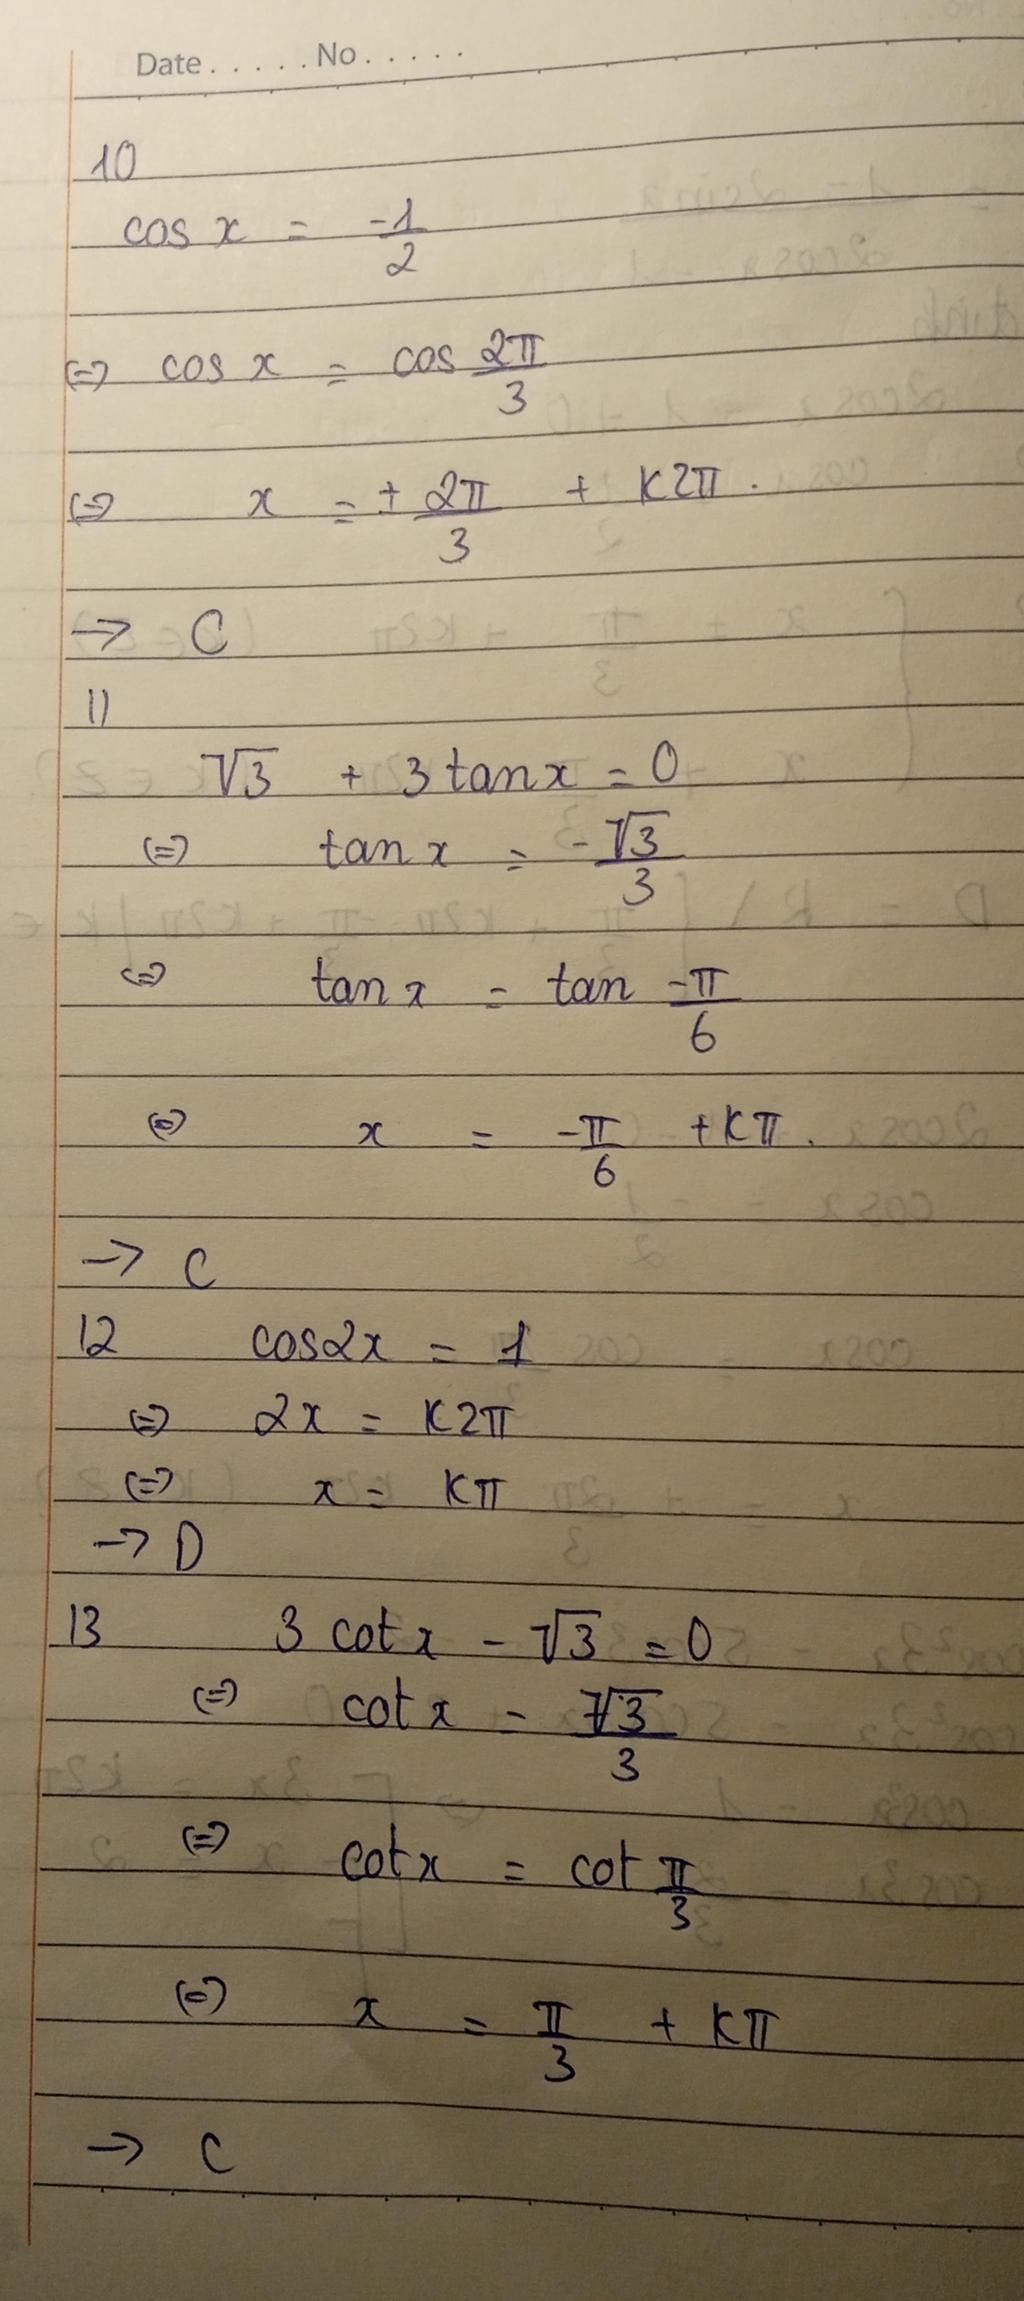 Date..... No.....
10
cos x = -1/2
(=) cos x = cos 2π/3
(=) x = ± 2π/3 + K2π.
→ C
11
√3 + 3 tan x = 0
(=) tan x = -√3/3
(=) tan x = tan -π/6
(=) x = -π/6 + Kπ.
→ C
12 cos2x = 1
(=) 2x = K2π
(=) x = Kπ
→ D
13 3 cot x - √3 = 0
(=) cot x = √3/3
(=) cot x = cot π/3
(=) x = π/3 + Kπ
→ C